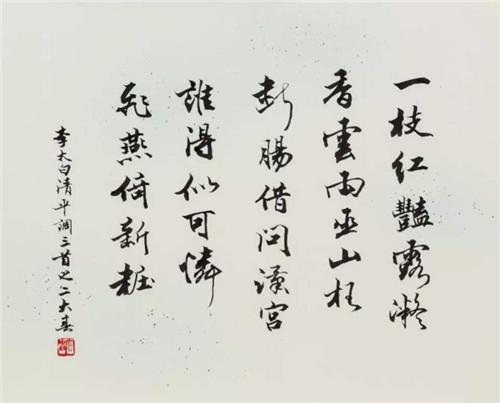 一枝红豔露凝
香雲雨巫山枉
断腸借问漢宫
誰得似可憐
飛燕倚新粧
李太白清平调三首之二大春